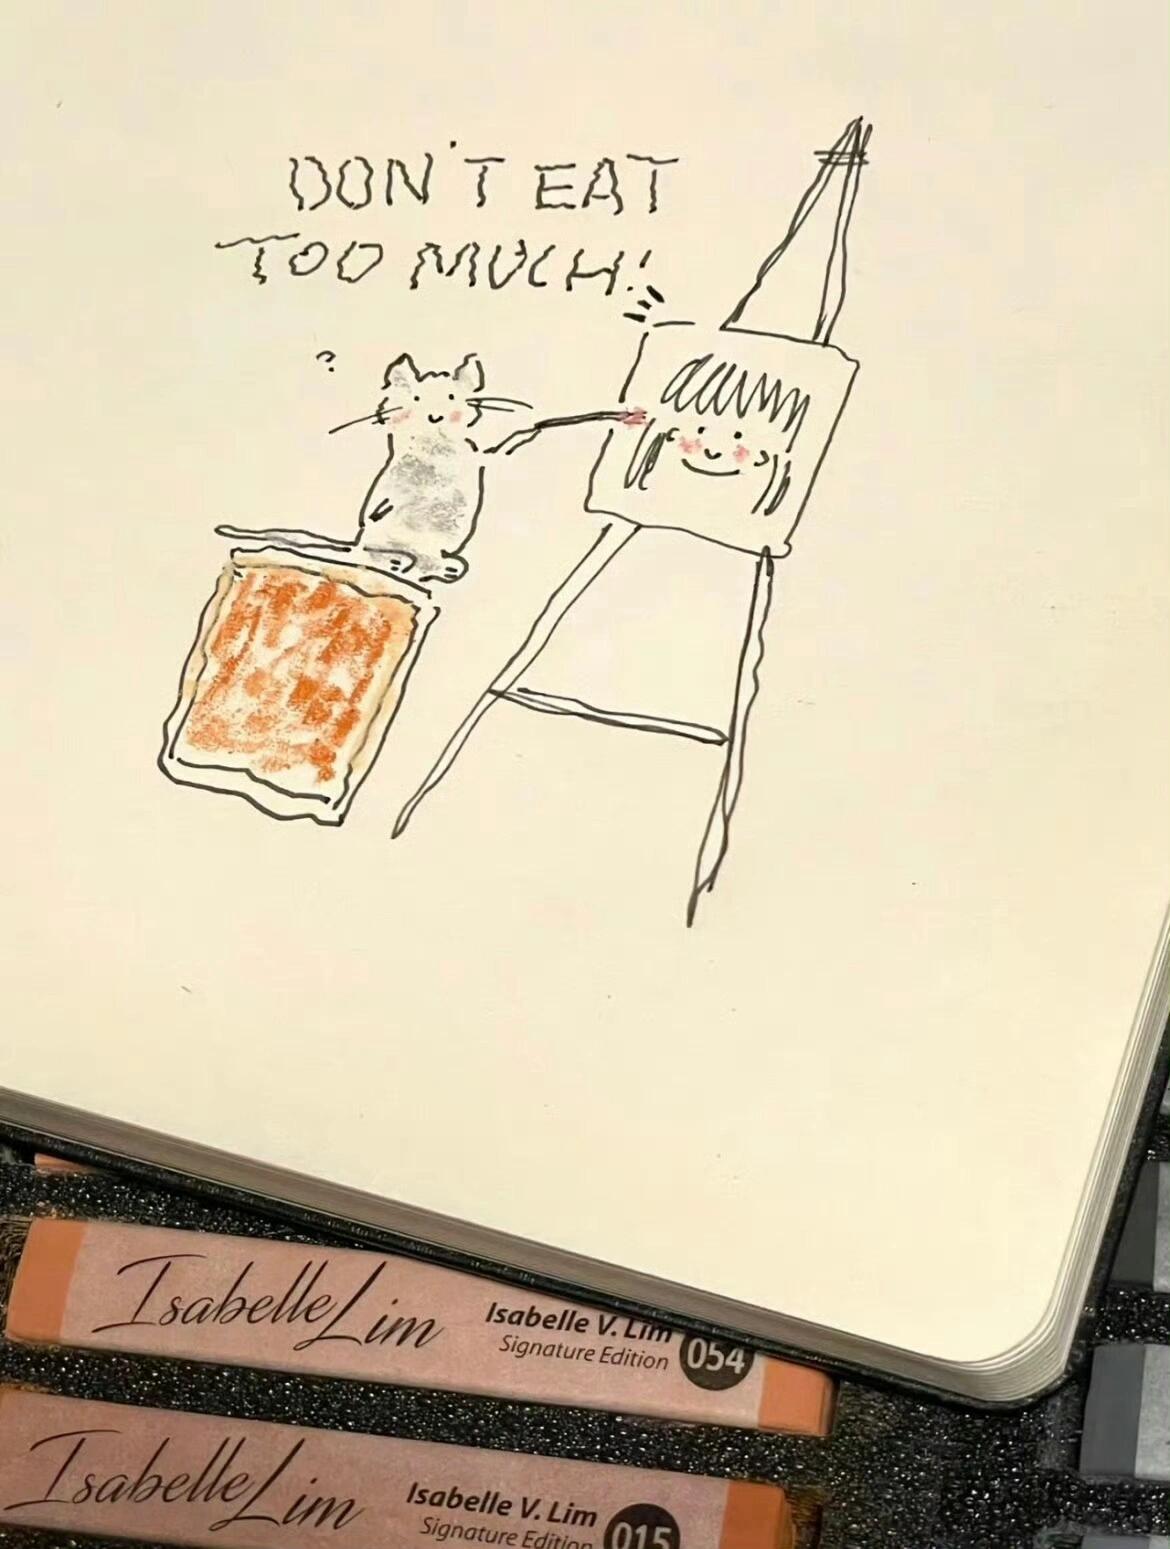 DON'T EAT
TOO MUCH!
?
Isabelle Lim
Isabelle V. Lim
Signature Edition
054
Isabelle Lim
Isabelle V. Lim
Signature Edition
015